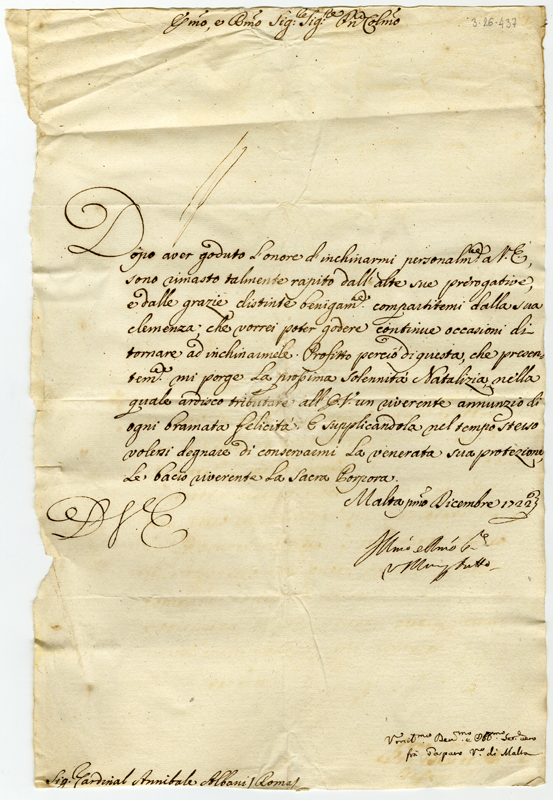 Em̃o, e Rm̃o Sig.re Sig.re Pñe Colm̃o
3-26-437
Dopo aver goduto l'onore d'inchinarmi personalm.te a V. E,
sono rimasto talmente rapito dall'alte sue prerogative,
e dalle grazie distinte benigam.te compartitemi dalla sua
clemenza; che vorrei poter godere continue occasioni di
tornare ad inchinarmele. Profitto perciò di questa, che presen-
tem.te mi porge la prossima solennità Natalizia, nella
quale ardisco tributare all'E.V. un riverente annunzio di
ogni bramata felicità. E supplicandola nel tempo stesso
volersi degnare di conservarmi la venerata sua protezione
le bacio riverente la Sacra Porpora.
Malta pm̃o Dicembre 1722
D V E
Sig.r Cardinal Annibale Albani (Roma)
fra Gasparo V.o di Malta